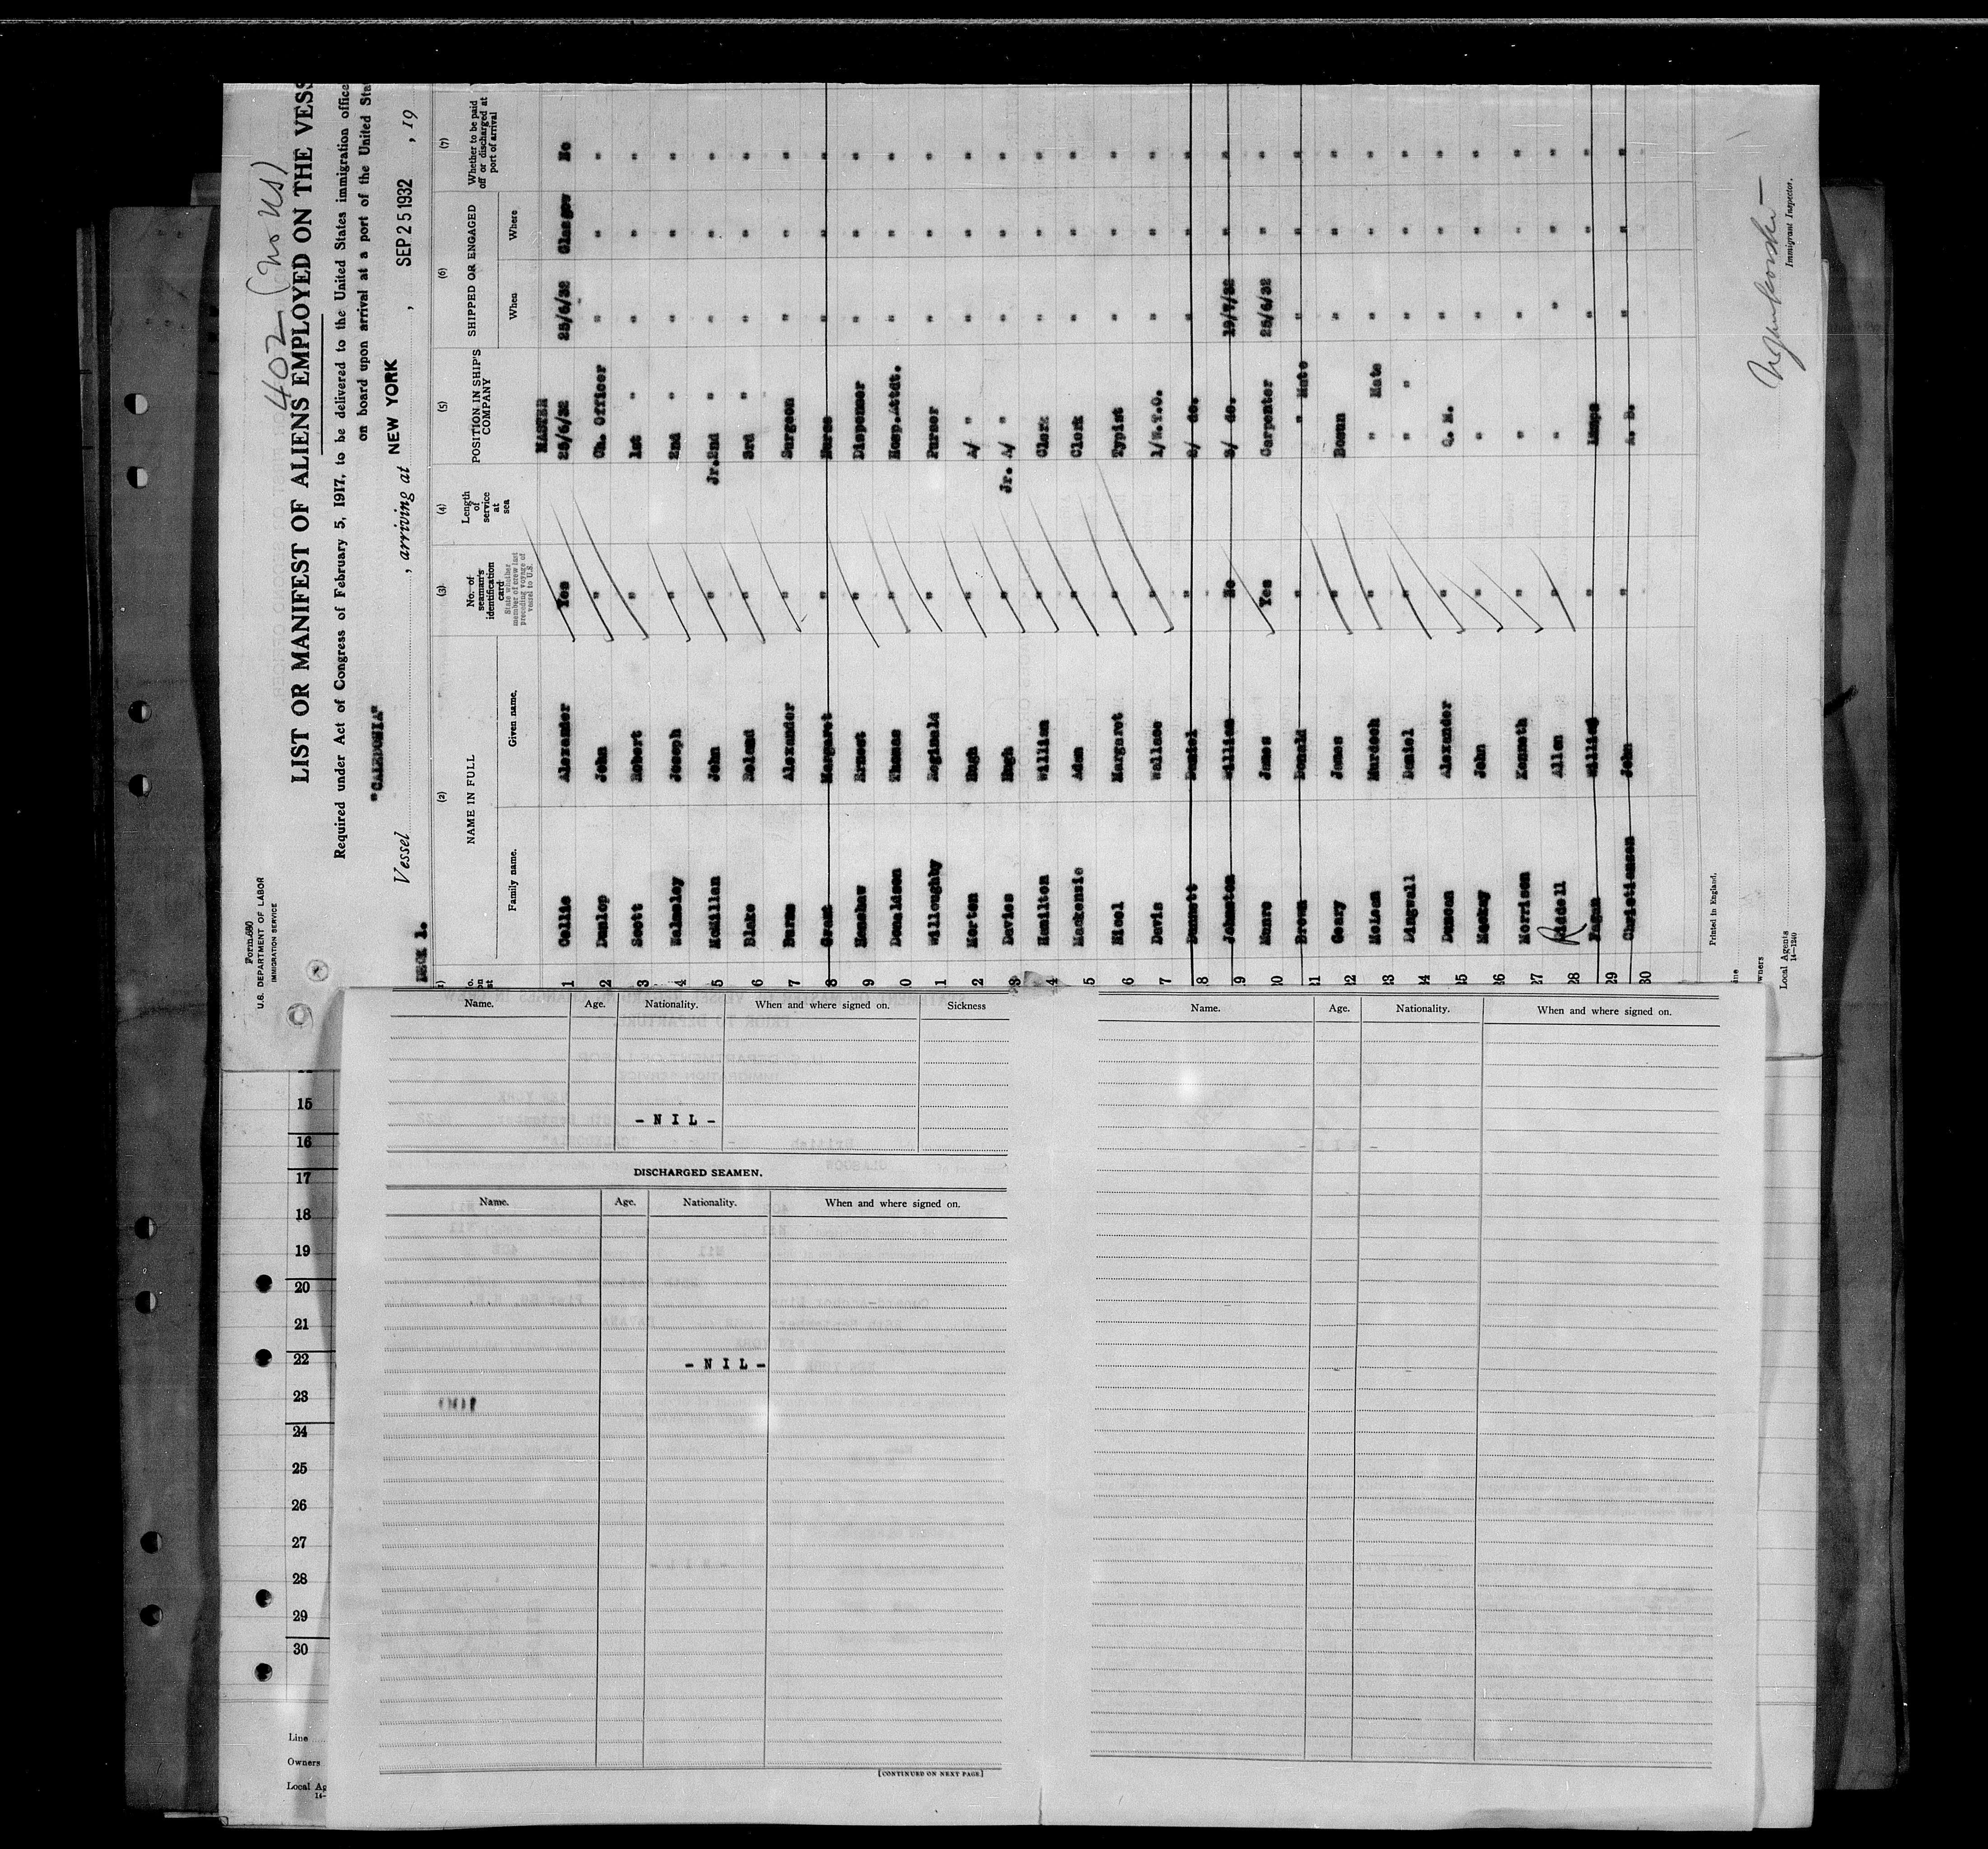 402 (No US)
Form 680
U.S. DEPARTMENT OF LABOR
IMMIGRATION SERVICE
LIST OR MANIFEST OF ALIENS EMPLOYED ON THE VESS
Required under Act of Congress of February 5, 1917, to be delivered to the United States immigration office
on board upon arrival at a port of the United Sta
Vessel "CALEDONIA", arriving at NEW YORK, SEP 25 1932, 19
DECK 1.
(2) (3) (4) (5) (6) (7)
NAME IN FULL
Family name. Given name.
No. of seaman's identification card
State whether member of crew last preceding voyage of vessel to U.S.
Length of service at sea
POSITION IN SHIP'S COMPANY
SHIPPED OR ENGAGED
When Where
Whether to be paid off or discharged at port of arrival
MASTER
1 Collie Alexander Yes 25/6/32 25/6/32 Glasgow No
2 Dunlop John " Ch. Officer " " "
3 Scott Robert " 1st " " " "
4 Walmsley Joseph " 2nd " " " "
5 McMillan John " Jr.2nd " " " "
6 Blake Roland " 3rd " " " "
7 Burns Alexander " Surgeon " " "
8 Grant Margaret " Nurse " " "
9 Henshaw Ernest " Dispenser " " "
0 Donaldson Thomas " Hosp.Attdt. " " "
1 Willoughby Reginald " Purser " " "
2 Morton Hugh " A/ " " " "
3 Davies Hugh " Jr. A/ " " " "
4 Hamilton William " Clerk " " "
5 Mackenzie Adam " Clerk " " "
6 Nicol Margaret " Typist " " "
7 Davis Wallace " 1/W.T.O. " " "
8 Dunnett Daniel " 2/ do. " " "
9 Johnston William No 3/ do. 19/7/32 " "
10 Munro James Yes Carpenter 25/6/32 " "
11 Brown Donald " " Mate " " "
12 Geary James " Bosun " " "
13 McLean Murdoch " " Mate " " "
14 Dingwall Daniel " " " " " "
15 Duncan Alexander " Q. M. " " "
26 Mackay John " " " " "
27 Morrison Kenneth " " " " "
28 Riddell Allan " " " " "
29 Fagan William " Lamps " " "
30 Christianson John " A. B. " " "
Printed in England.
ine
wners
Local Agents
14—1240
Immigrant Inspector.
Name. Age. Nationality. When and where signed on. Sickness
- N I L -
DISCHARGED SEAMEN.
Name. Age. Nationality. When and where signed on.
- N I L -
[CONTINUED ON NEXT PAGE]
Name. Age. Nationality. When and where signed on.
15
16
17
18
19
20
21
22
23
24
25
26
27
28
29
30
Line
Owners
Local Ag
14-